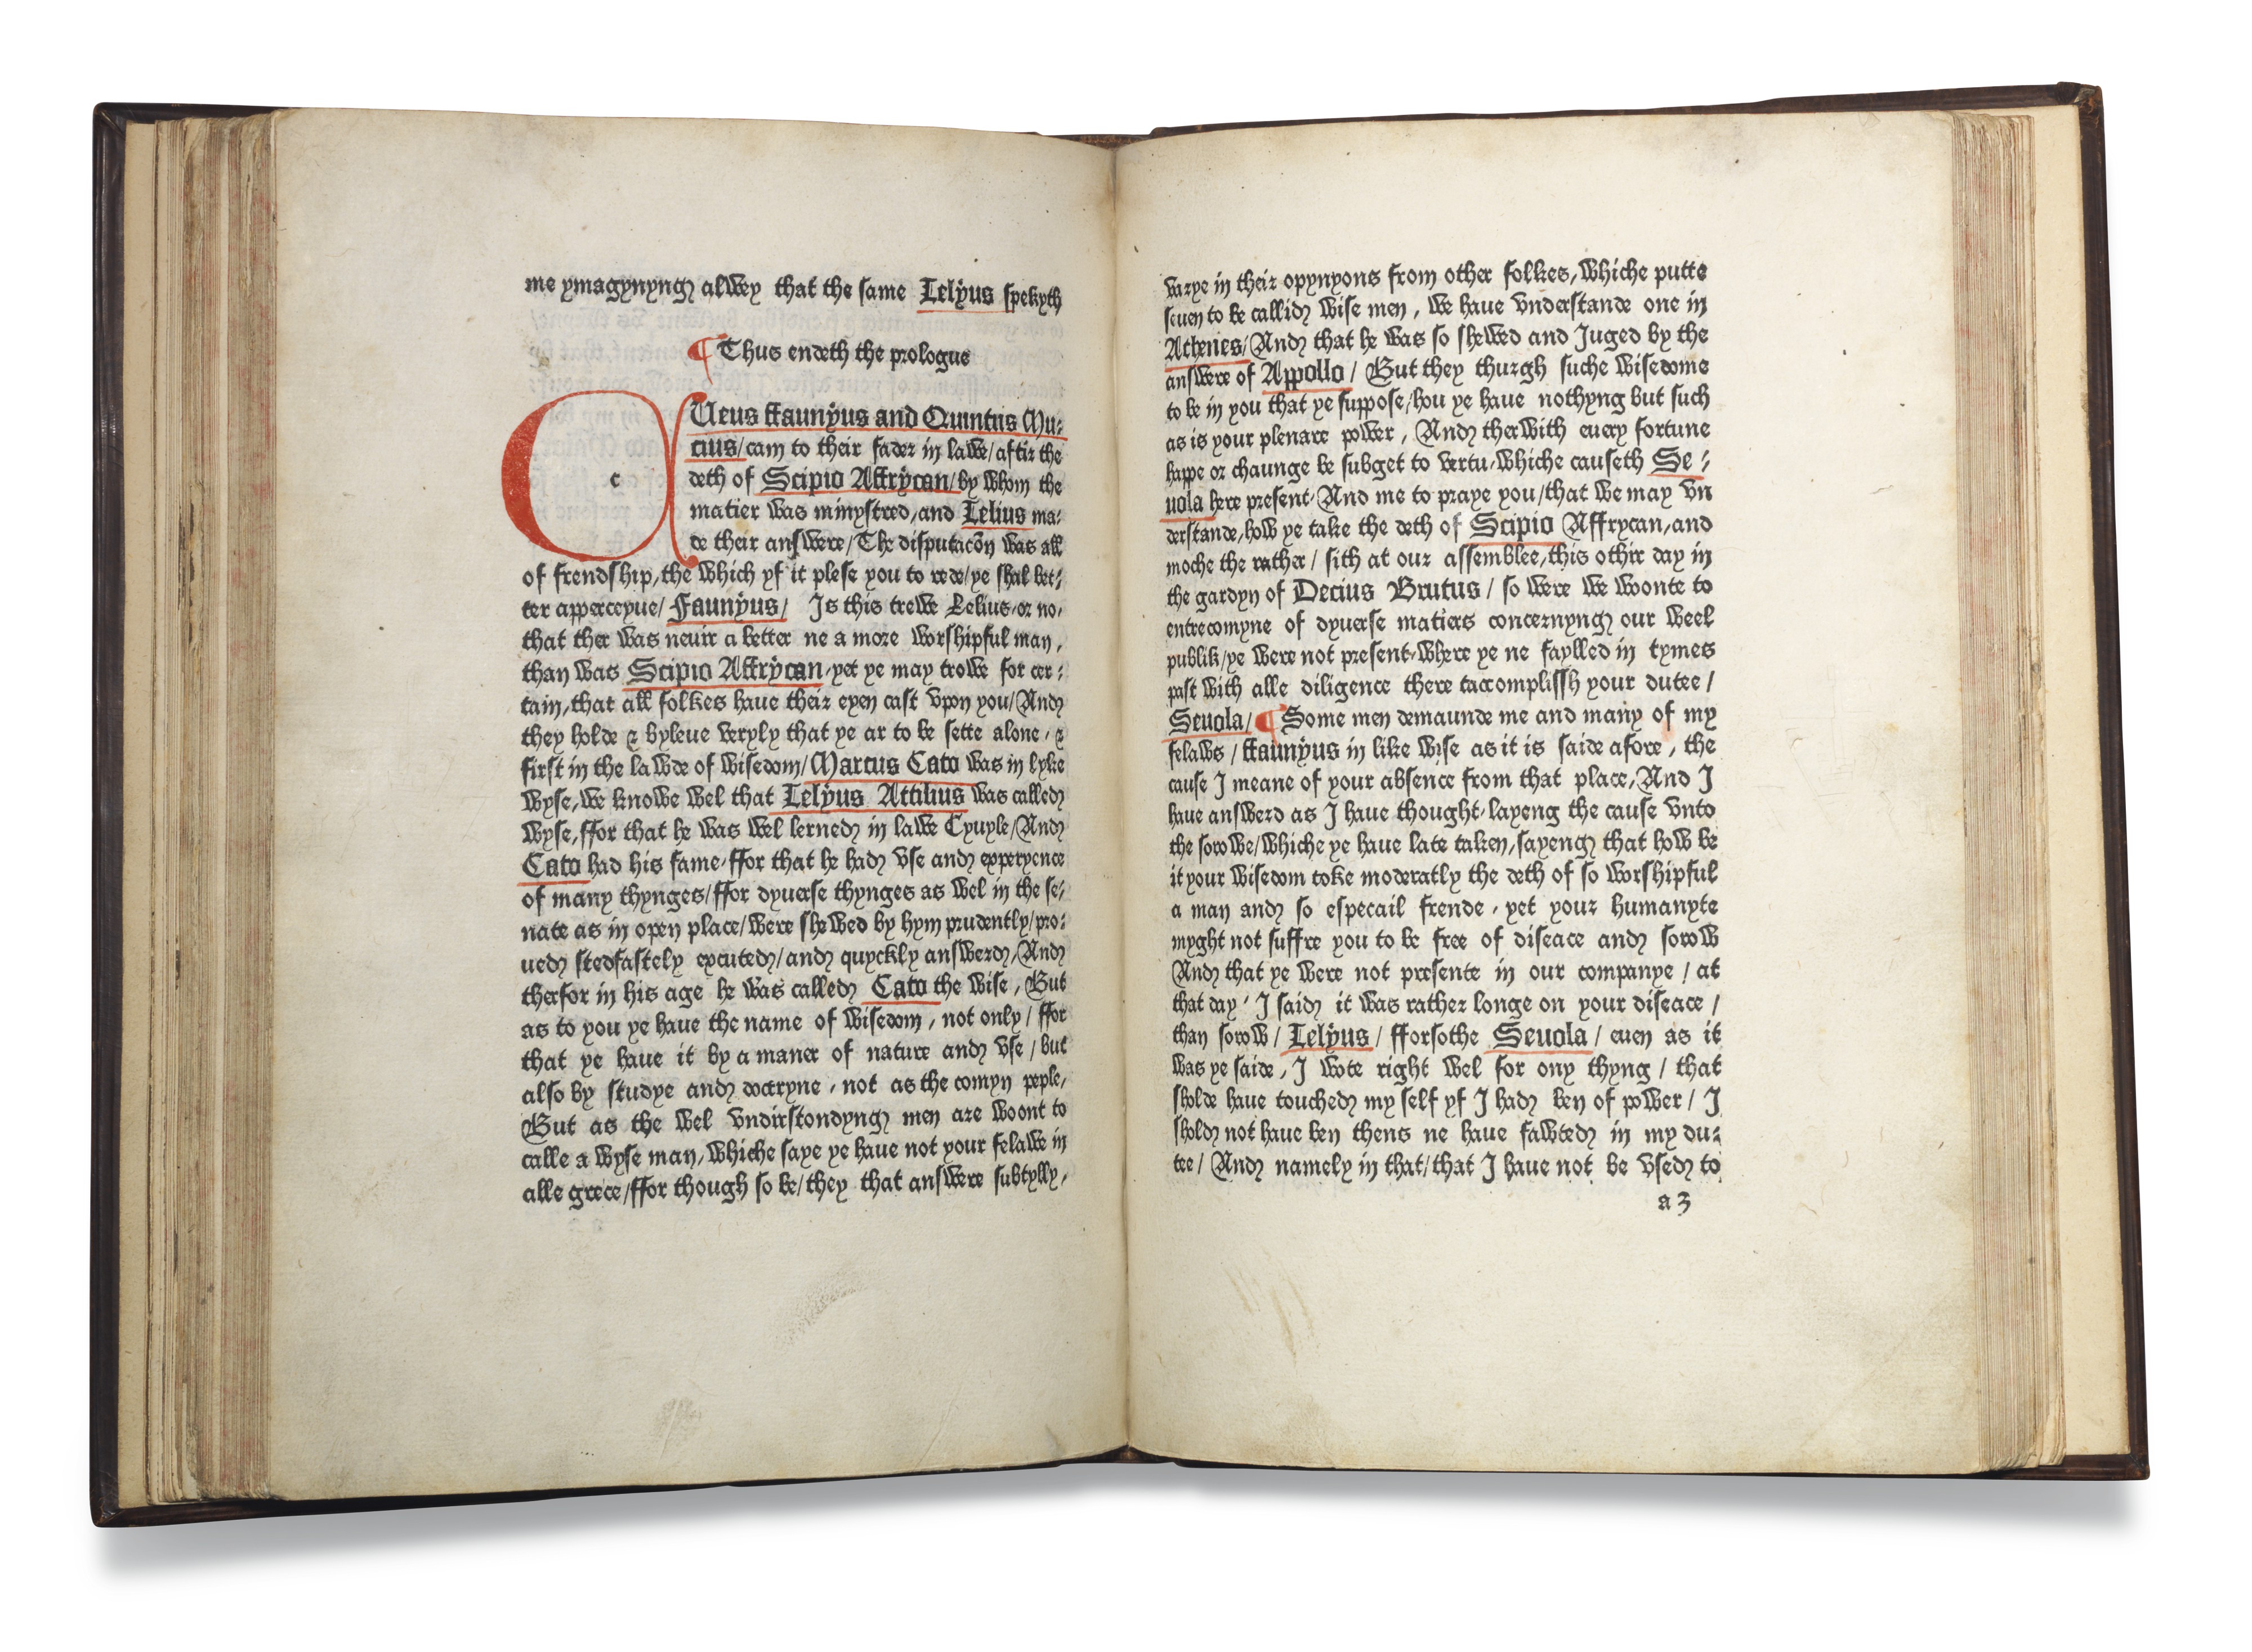 me ymagynyng alwey that the same Lelyus spekyth
¶ Thus endeth the prologue
c
Ueus ffaunyus and Quintus Mu:
cius/cam to their fader in lawe/aftir the
deth of Scipio Affrycan/by whom the
matier was mynystred, and Lelius ma:
de their answere/The disputacōn was all
of frendship, the which yf it plese you to rede/ye shal bet:
ter apperceyue/ Faunyus/ Is this trewe Lelius, or no,
that ther was neuir a better ne a more worshipful man,
than was Scipio Affrycan, yet ye may trowe for cer:
tain, that all folkes haue their eyen cast vpon you/And
they holde & byleue veryly that ye ar to be sette alone, &
first in the lawde of wisedom/Marcus Cato was in lyke
wyse, we knowe wel that Lelyus Attilius was called
wyse, ffor that he was wel lerned in lawe Cyuyle/And
Cato had his fame, ffor that he had vse and experyence
of many thynges/ffor dyuerse thynges as wel in the se:
nate as in open place/were shewed by hym prudently/pro:
ued stedfastely excuted/and quyckly answerd, And
therfor in his age he was called Cato the wise, But
as to you ye haue the name of wisedom, not only/ffor
that ye haue it by a maner of nature and vse/but
also by studye and doctryne, not as the comyn peple,
But as the wel vndirstondyng men are woont to
calle a wyse man, whiche saye ye haue not your felawe in
alle grece/ffor though so be/they that answere subtylly,
varye in their opynyons from other folkes, whiche putte
seuen to be callid wise men, we haue vnderstande one in
Athenes/And that he was so shewed and Juged by the
answere of Appollo/ But they thurgh suche wisedome
to be in you that ye suppose/hou ye haue nothyng but such
as is your plenare power, And therwith euery fortune
happe or chaunge be subget to vertu, whiche causeth Se:
uola here present, And me to praye you/that we may vn
derstande, how ye take the deth of Scipio Affrycan, and
moche the rather/ sith at our assemblee, this othir day in
the gardyn of Decius Brutus/ so were we woonte to
entrecomyne of dyuerse matiers concernyng our weel
publik/ye were not present, where ye ne faylled in tymes
past with alle diligence there taccomplissh your dutee/
Seuola/ ¶ Some men demaunde me and many of my
felaws/ ffaunyus in like wise as it is saide afore, the
cause I meane of your absence from that place, And I
haue answerd as I haue thought, layeng the cause vnto
the sorowe/whiche ye haue late taken, sayeng that how be
it your wisedom toke moderatly the deth of so worshipful
a man and so especail frende, yet your humanyte
myght not suffre you to be free of diseace and sorow
And that ye were not presente in our companye/ at
that day, I said it was rather longe on your diseace/
than sorow/ Lelyus/ fforsothe Seuola/ euen as it
was ye saide, I wote right wel for ony thyng/ that
sholde haue touched my self yf I had ben of power/ I
shold not haue ben thens ne haue fawted in my du:
tee/ And namely in that/that I haue not be vsed to
a 3